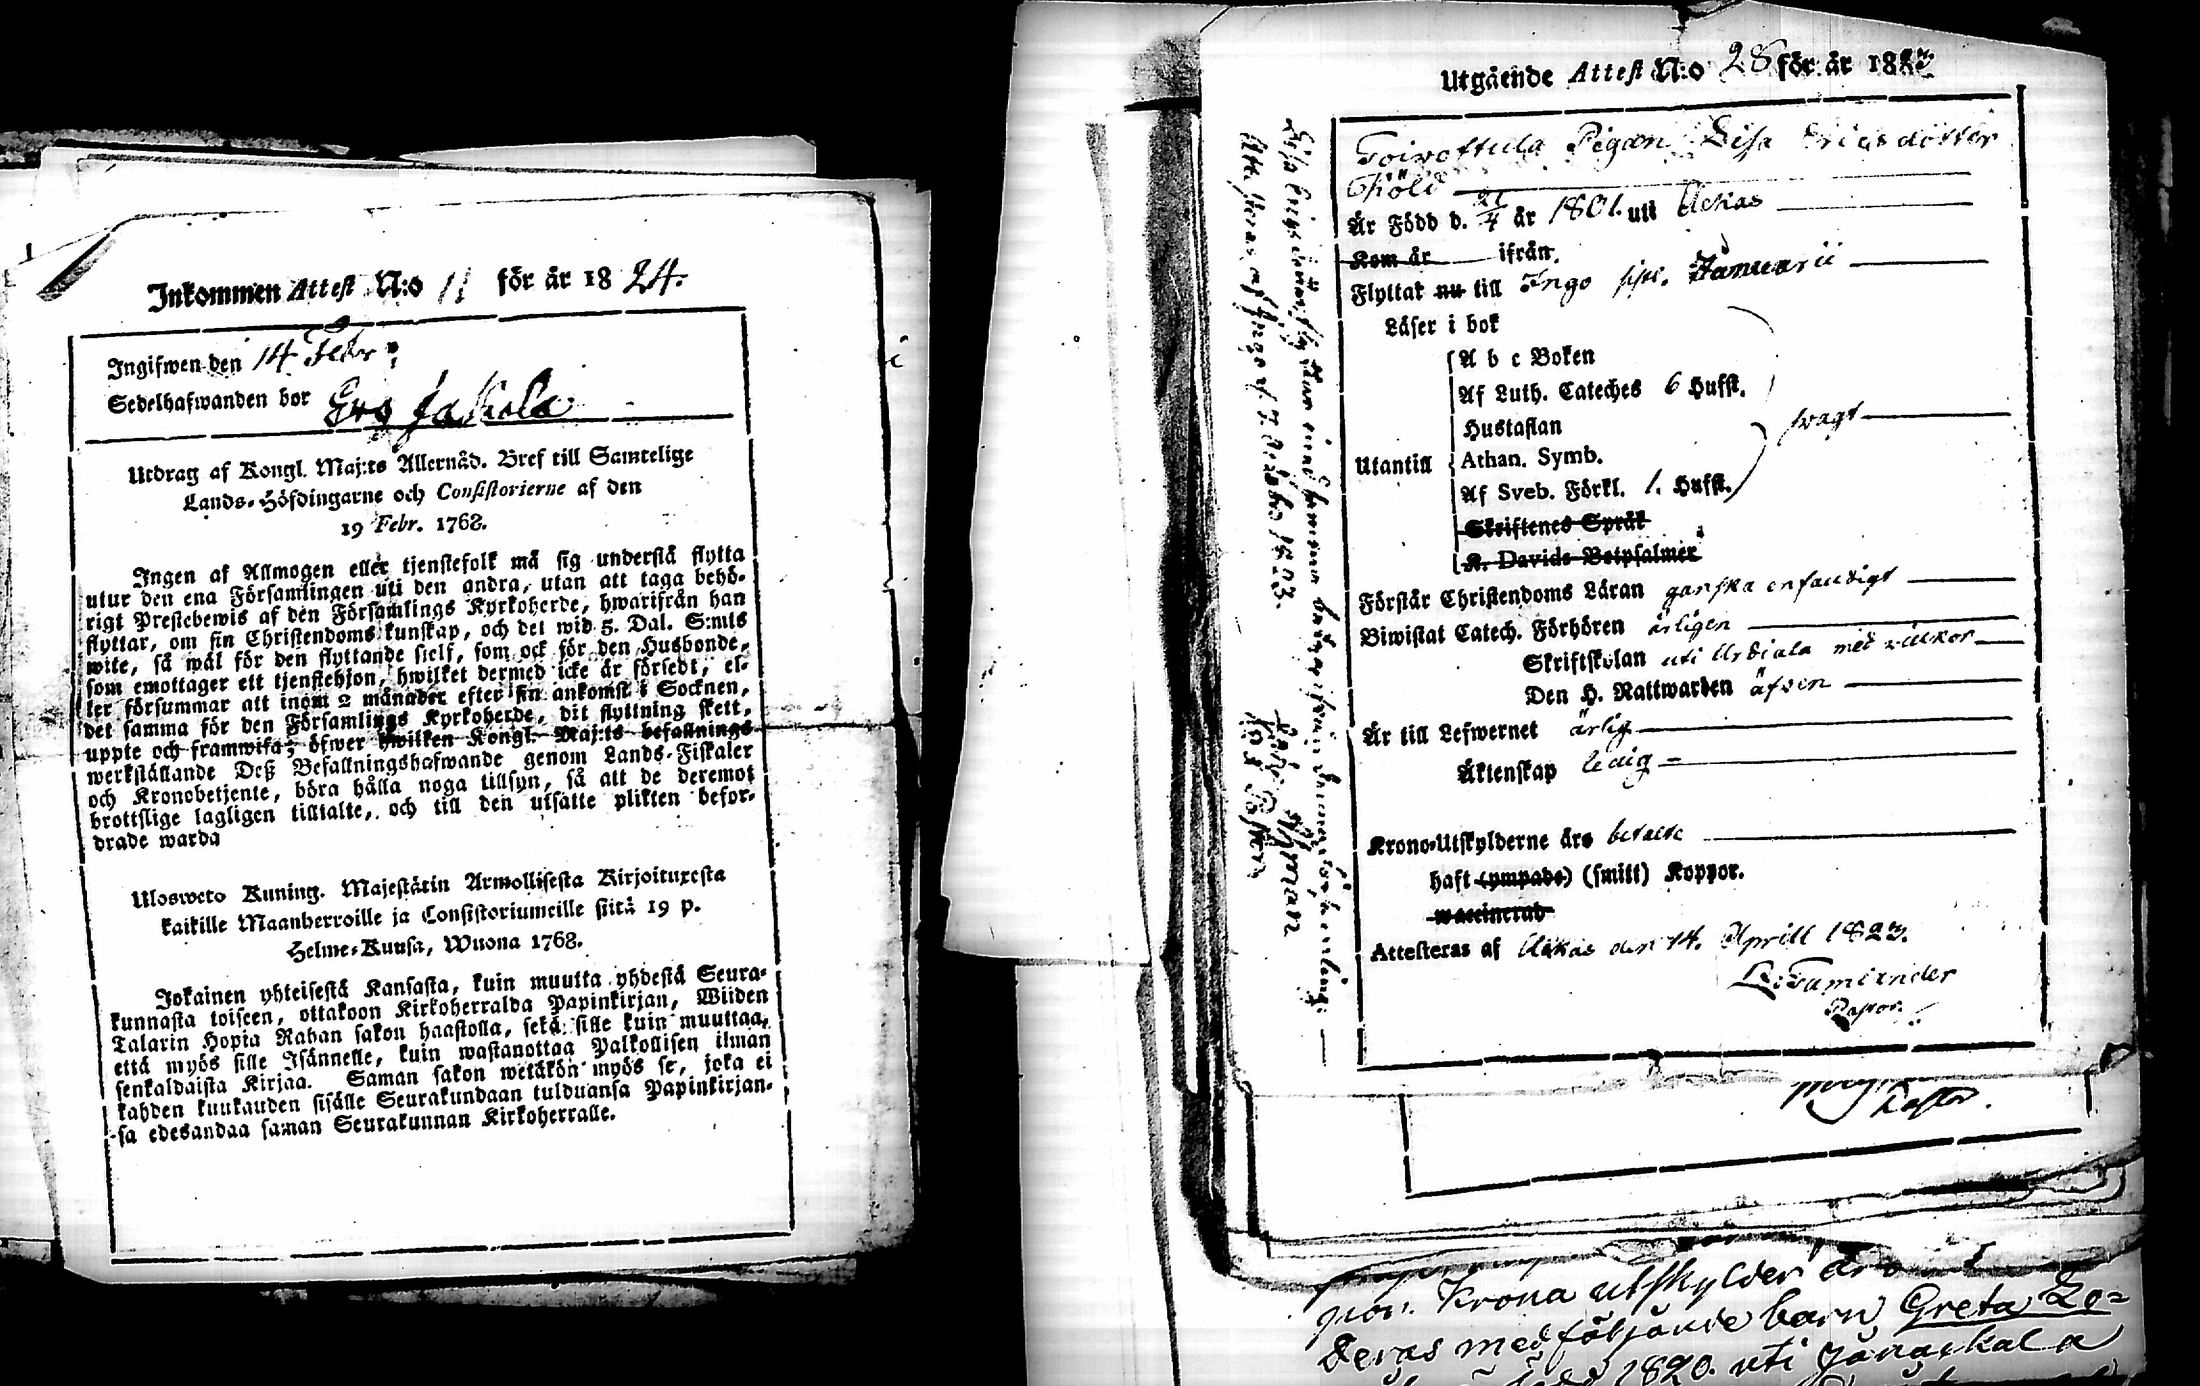 Inkommen Attest N:o 11 för år 1824.
Ingifwen den 14 Febr:
Sedelhafwanden bor Erg Jakola
Utdrag af Kongl. Maj:ts Allernåd. Bref till Samtelige
Lands-Höfdingarne och Consistorierne af den
19 Febr. 1768.
Ingen af Allmogen eller tjenstefolk må sig understå flytta
utur den ena Församlingen uti den andra, utan att taga behö-
rigt Prestebewis af den Församlings Kyrkoherde, hwarifrån han
flyttar, om sin Christendoms kunskap, och det wid 5. Dal. S:mts
wite, så wäl för den flyttande sielf, som ock för den Husbonde,
som emottager ett tjenstehjon, hwilket dermed icke är försedt, el-
ler försummar att inom 2 månader efter sin ankomst i Socknen,
det samma för den Församlings Kyrkoherde, dit flyttning skett,
uppte och framwisa; öfwer hwilken Kongl. Maj:ts befallnings
werkställande Deß Befallningshafwande genom Lands-Fiskaler
och Kronobetjente, böra hålla noga tillsyn, så att de deremot
brottslige lagligen tilltalte, och till den utsatte plikten befor-
drade warda
Ulosweto Kuning. Majestätin Armollisesta Kirjoituxesta
kaikille Maanherroille ja Consistoriumeille siitä 19 p.
Helme-Kuusa, Wuona 1768.
Jokainen yhteisestä Kansasta, kuin muutta yhdestä Seura-
kunnasta toiseen, ottakoon Kirkoherralda Papinkirjan, Wiiden
Talarin Hopia Rahan sakon haastolla, sekä sille kuin muuttaa,
että myös sille Isännelle, kuin wastanottaa Palkollisen ilman
senkaldaista Kirjaa. Saman sakon wetäkön myös se, joka ei
kahden kuukauden sisälle Seurakundaan tulduansa Papinkirjan-
sa edesandaa saman Seurakunnan Kirkoherralle.
Utgående Attest N:o 28 för år 1823
Toivoftula Pigan Lisa Ericsdotter
Sköld
Är Född d. 21/4 år 1801. uti Ackas
Kom år ifrån.
Flyttat nu till Ingo sist. Januarii
Läser i bok
Utantill
A b c Boken
Af Luth. Cateches 6 Hufst.
Hustaflan
Athan. Symb.
Af Sveb. Förkl. 1. Hufst.
Skriftenes Språk
K. Davids Botpsalmer
swagt
Förstår Christendoms Läran ganska enfaldigt
Biwistat Catech. Förhören årligen
Skriftskolan uti Urdiala med willkor
Den H. Nattwarden äfven
Är till Lefwernet ärlig
Äktenskap ledig
Krono-Utskylderne äro betalte
haft (ympade) (smitt) Koppor.
waccinerad
Attesteras af Ackas den 14. Aprill 1823.
Pastor.
Lisa Ericsdotter
Attesteras af Ingo d. 1823.
Pastor.
Krona utskylder äro
Deras medföljande barn Greta Lo=
född 1820. uti Janackala